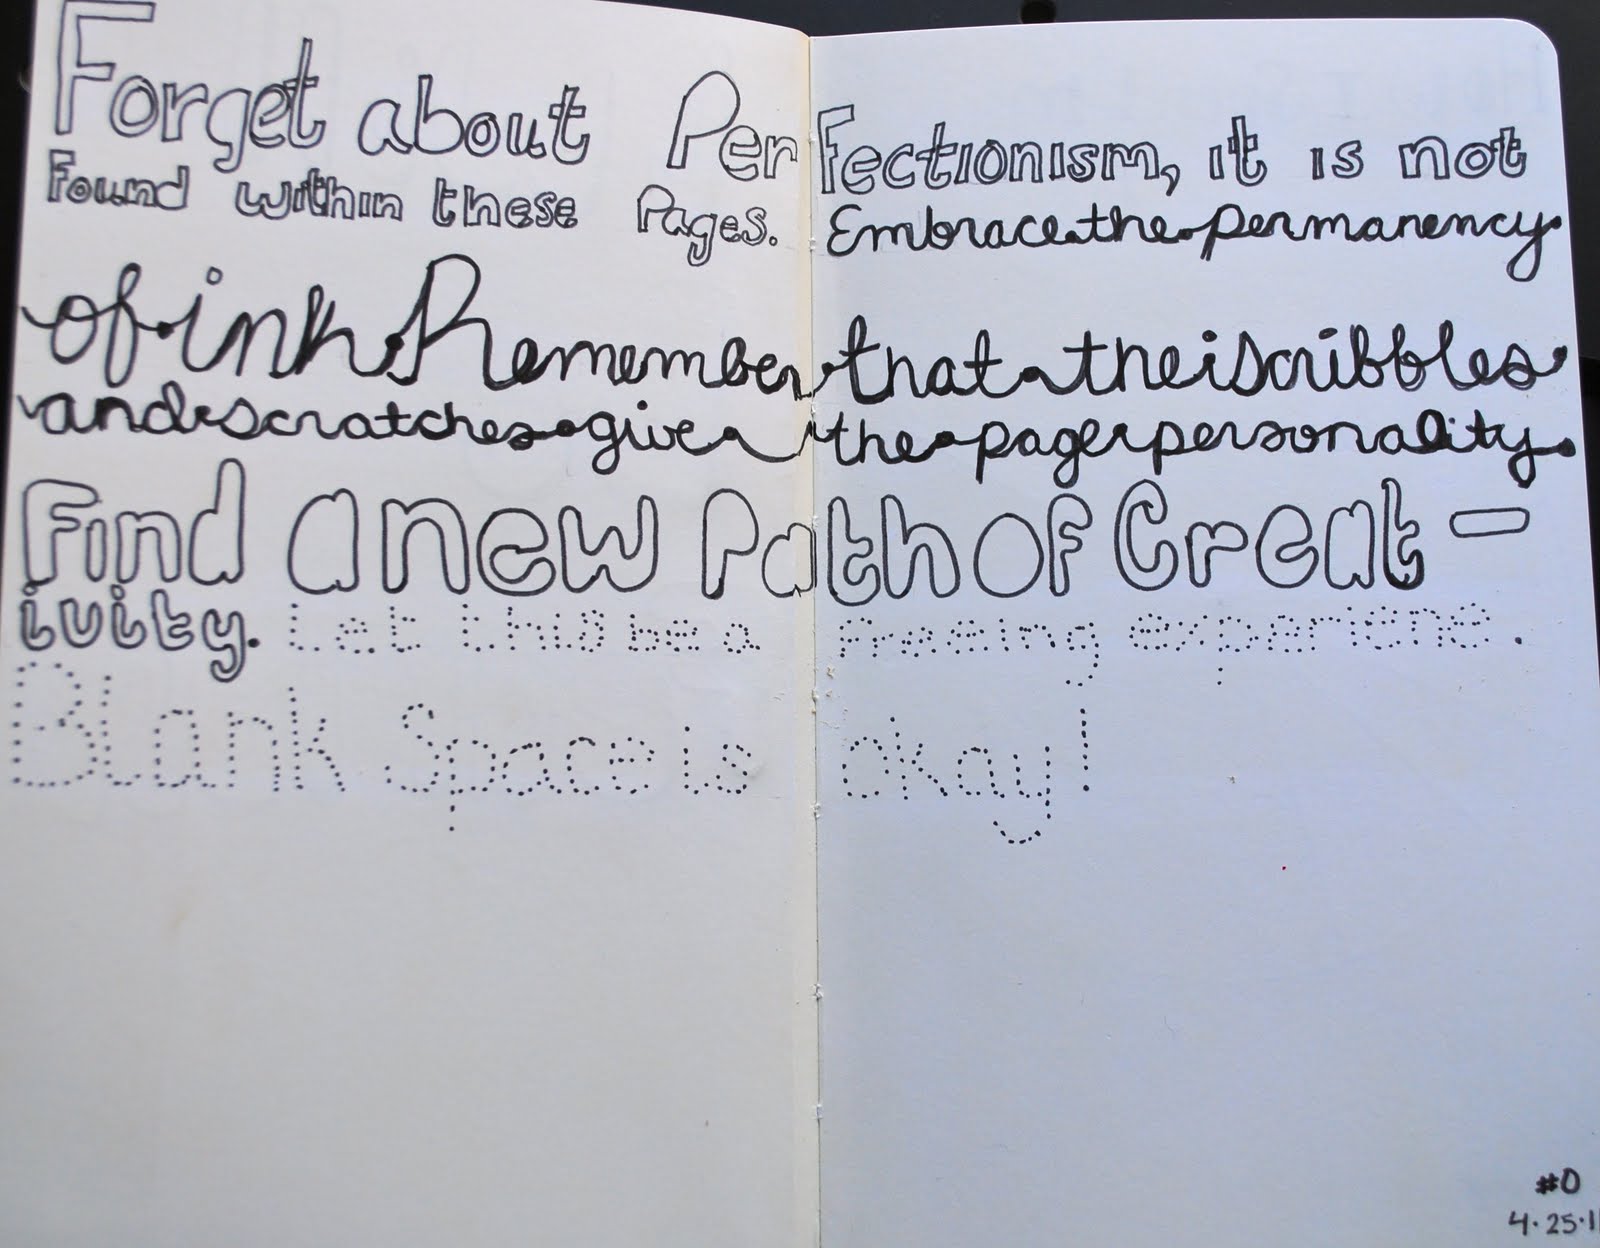 Forget about Perfectionism, it is not
Found within these Pages. Embrace the permanency
of ink Remember that the scribbles
and scratches give the page personality.
Find a new Path of Creat-
ivity. Let this be a freeing experiene.
Blank Space is okay!
#0
4.25.11